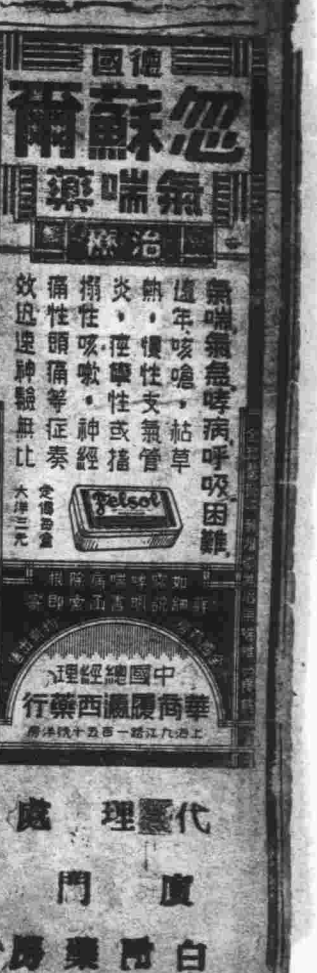 德國
忽蘇爾
氣喘藥
治療
氣喘氣急哮病呼吸困難
遠年咳嗆，枯草
熱，慢性支氣管
炎，痙攣性或搐
搦性咳嗽，神經
痛性頭痛等症奏
效迅速神驗無比
Felsol
定價每盒
大洋三元
如索哮喘病除根
詳細說明書函索即寄
中國總經理
華商履瀛西藥行
上海九江路一百五十號洋房
代理處
廈門
白附藥房